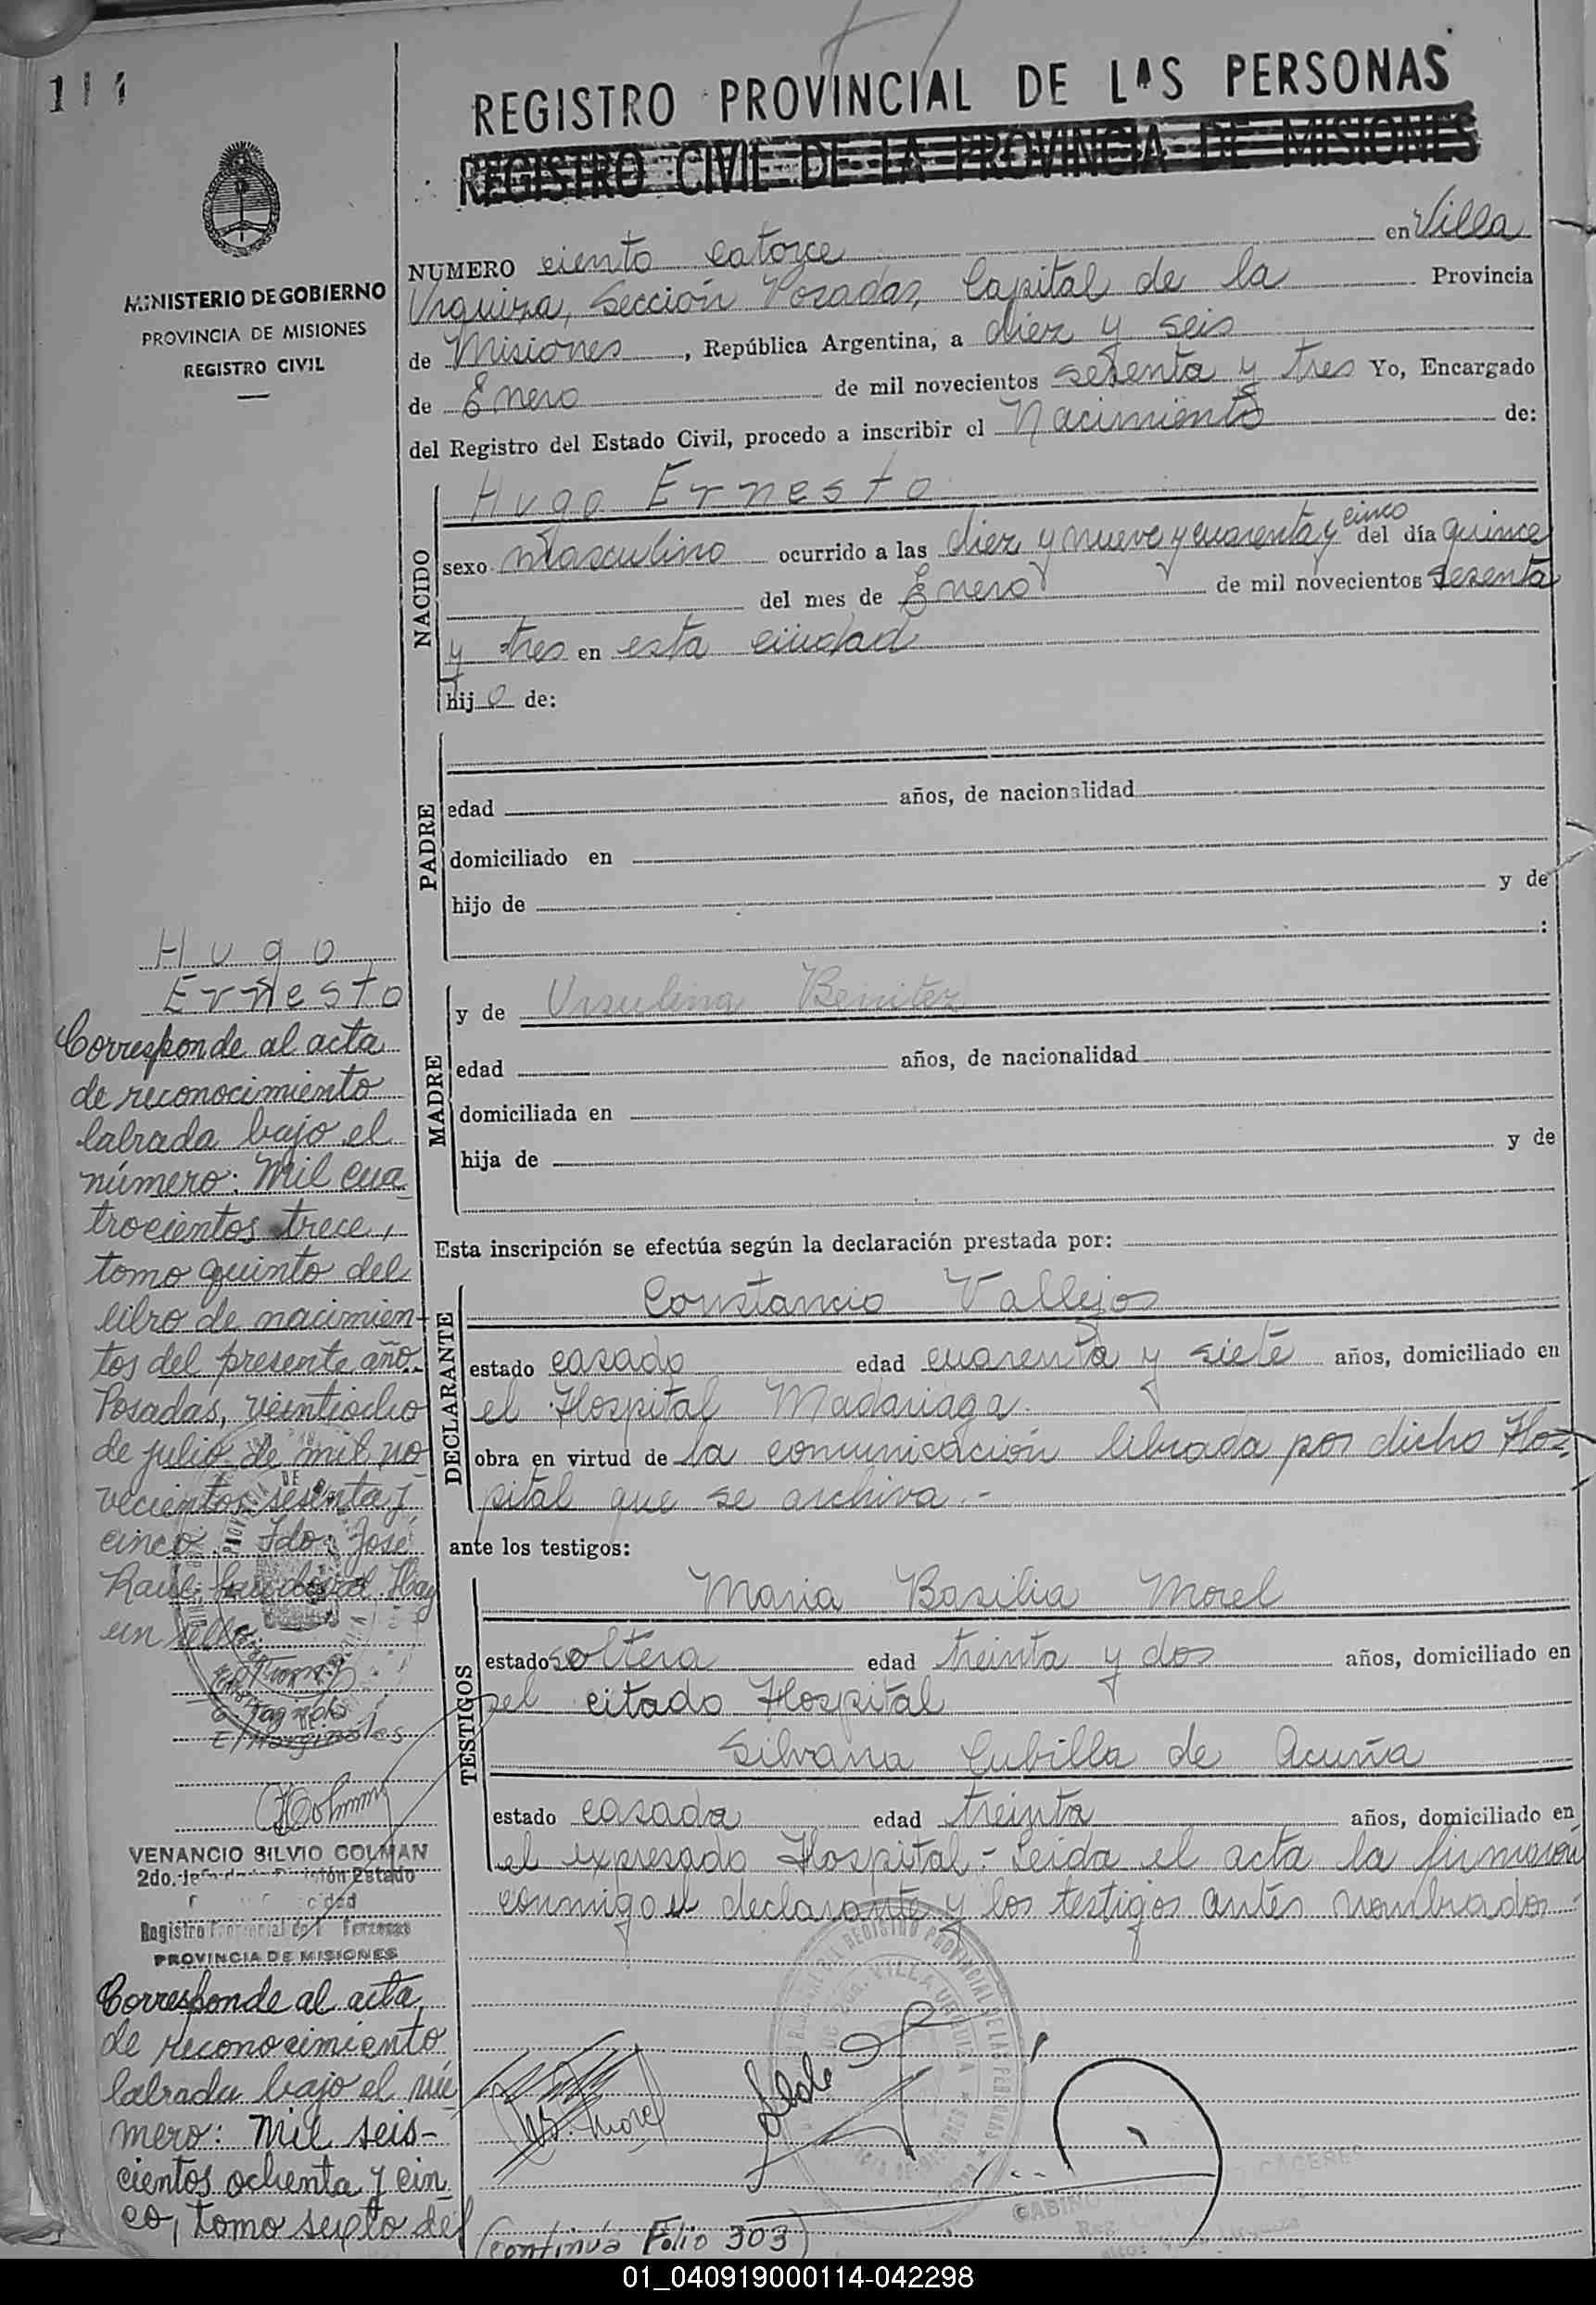 114
REGISTRO PROVINCIAL DE LAS PERSONAS
REGISTRO CIVIL DE LA PROVINCIA DE MISIONES
MINISTERIO DE GOBIERNO
PROVINCIA DE MISIONES
REGISTRO CIVIL
NUMERO ciento catorce en Villa
Urquiza, Sección Posadas, Capital de la Provincia
de Misiones, República Argentina, a diez y seis
de Enero de mil novecientos sesenta y tres Yo, Encargado
del Registro del Estado Civil, procedo a inscribir el Nacimiento de:
NACIDO
Hugo Ernesto
sexo masculino ocurrido a las diez y nueve y cuarenta y cinco del día quince
del mes de Enero de mil novecientos sesenta
y tres en esta ciudad
hijo de:
PADRE
edad años, de nacionalidad
domiciliado en
hijo de y de
:
MADRE
y de Ursulina Benitez
edad años, de nacionalidad
domiciliada en
hija de y de
Esta inscripción se efectúa según la declaración prestada por:
DECLARANTE
Constancio Vallejos
estado casado edad cuarenta y siete años, domiciliado en
el Hospital Madariaga
obra en virtud de la comunicación librada por dicho Hos-
pital que se archiva.-
ante los testigos:
TESTIGOS
Maria Basilia Morel
estado soltera edad treinta y dos años, domiciliado en
el citado Hospital
Silvana Cubilla de Acuña
estado casada edad treinta años, domiciliado en
el expresado Hospital.- Leida el acta la firmaron
conmigo el declarante y los testigos antes nombrados.-
Hugo
Ernesto
Corresponde al acta
de reconocimiento
labrada bajo el
número: Mil cua
trocientos trece,
tomo quinto del
libro de nacimien-
tos del presente año.-
Posadas, veintiocho
de julio de mil no
vecientos sesenta y
cinco. Fdo: José
Raul Sandoval. Hay
un sello
VENANCIO SILVIO COLMAN
2do. Jefe de División Estado
Registro Provincial de l Personas
PROVINCIA DE MISIONES
Corresponde al acta
de reconocimiento
labrada bajo el nú
mero: Mil seis-
cientos ochenta y cin
co, tomo sexto del
B. Morel
VILLA URQUIZA
CACERES
(continúa Folio 303)
01_040919000114-042298